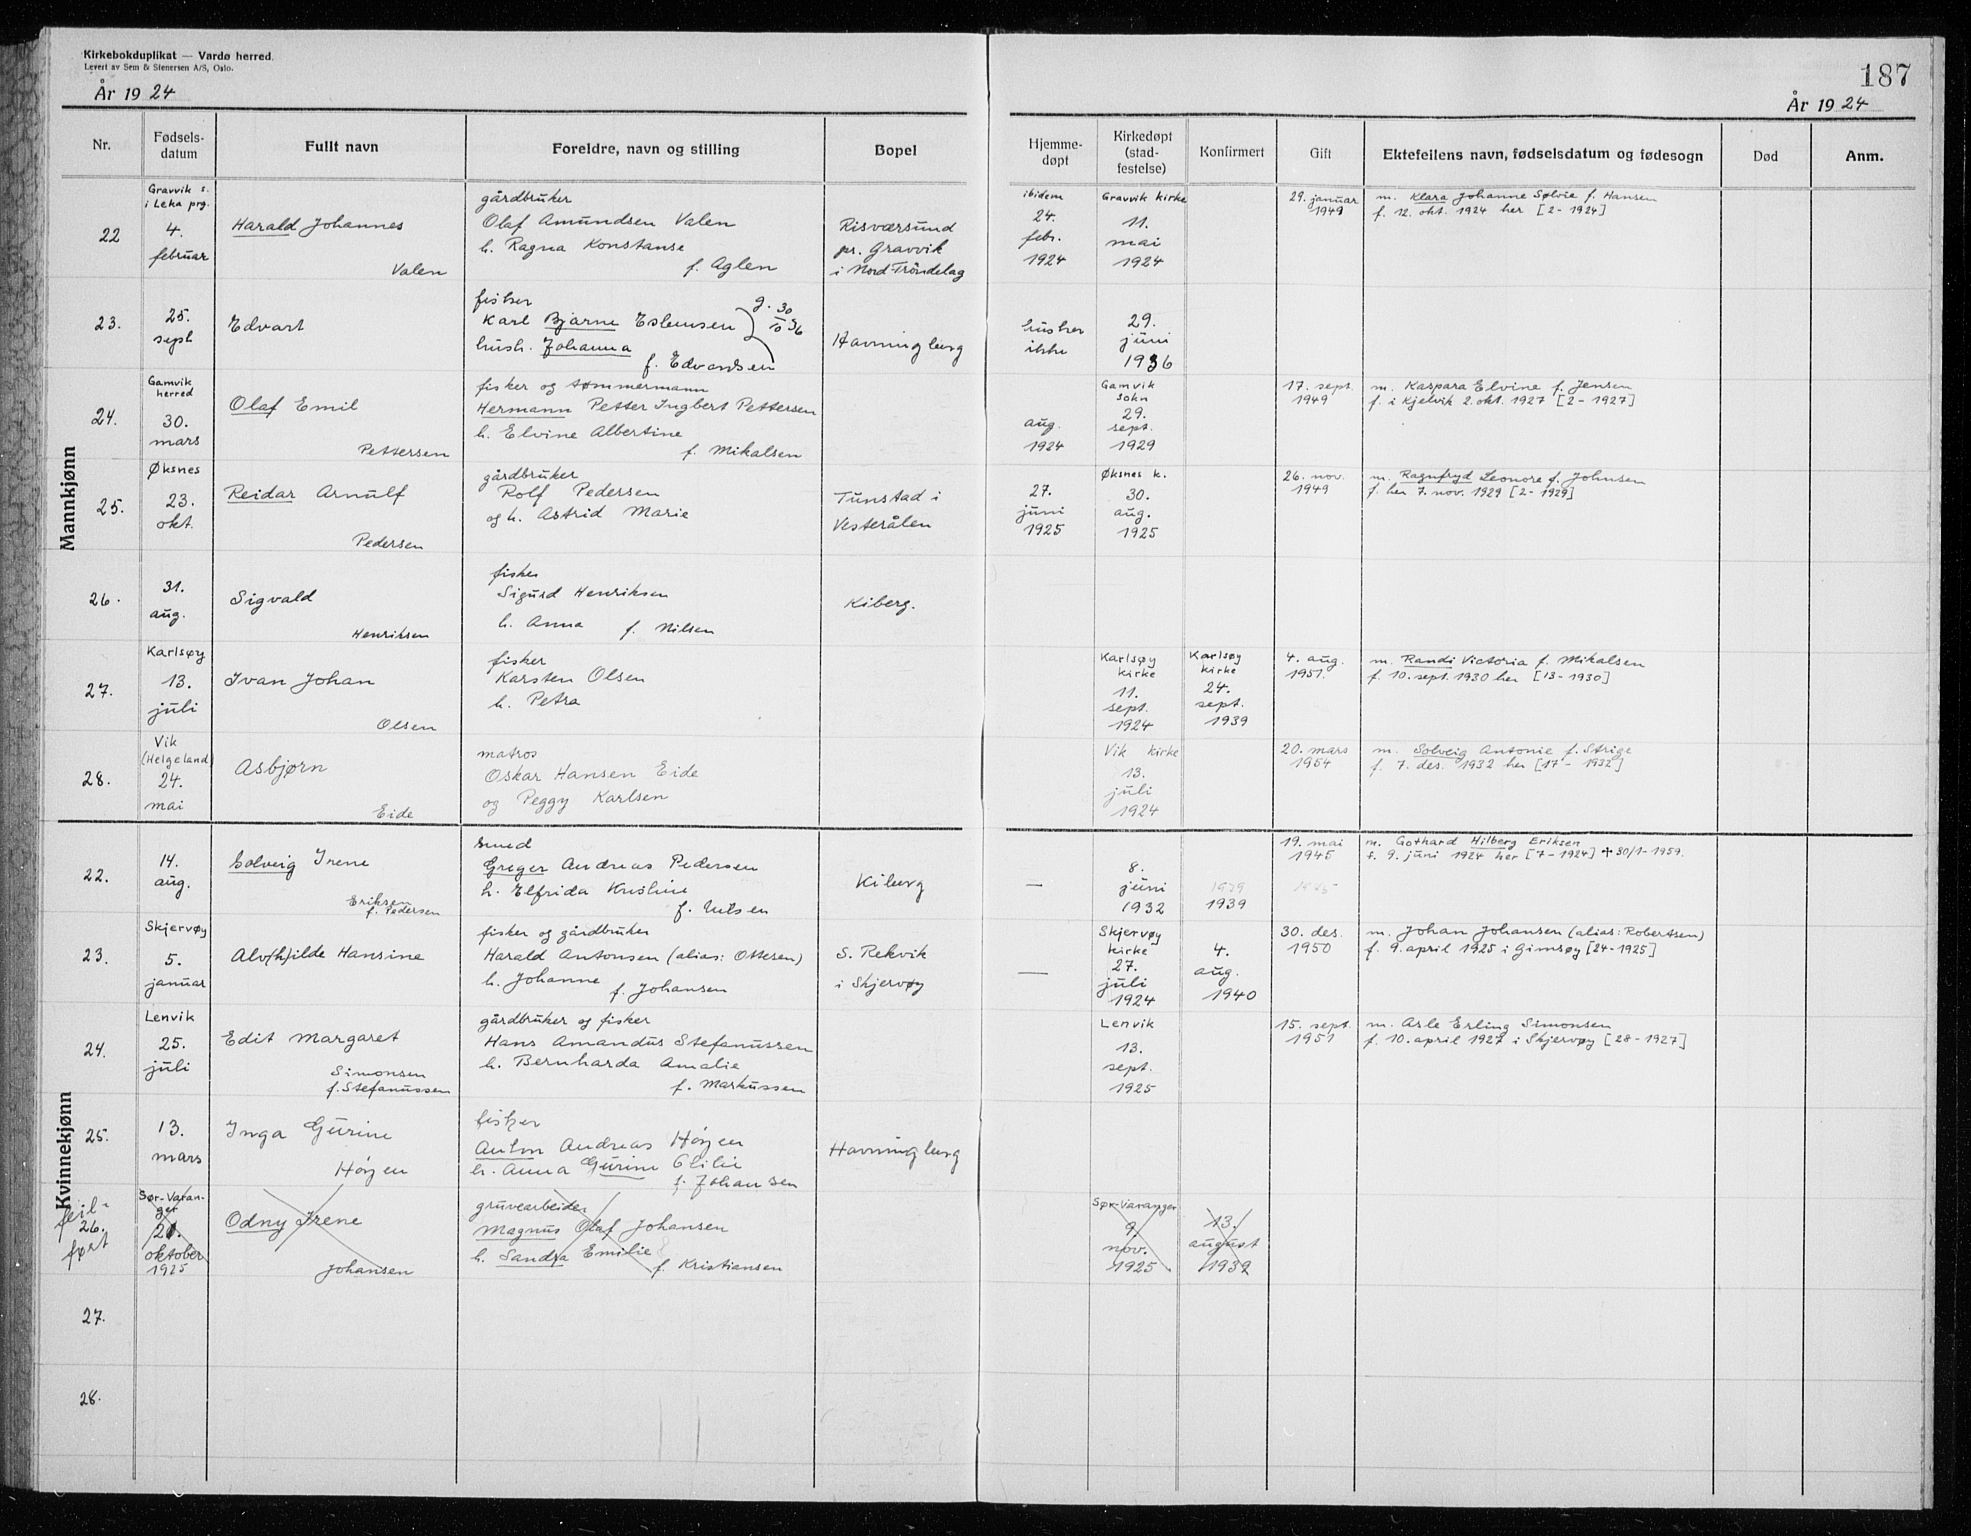 Kirkebokduplikat — Vardø herred.
Levert av Sem & Stenersen A/S, Oslo.
År 1924
187
År 1924
Nr.
Fødsels-
datum
Fullt navn
Foreldre, navn og stilling
Bopel
Hjemme-
døpt
Kirkedøpt
(stad-
festelse)
Konfirmert
Gift
Ektefellens navn, fødselsdatum og fødesogn
Død
Anm.
Mannkjønn
22
Gravvik s.
i Leka prg.
4.
februar
Harald Johannes
Valen
gårdbruker
Olaf Amundsen Valen
h. Ragna Konstanse
f. Aglen
Risværsund
pr. Gravvik
i Nord Trøndelag
ibidem
24.
febr.
1924
Gravvik kirke
11.
mai
1924
29. januar
1949
m. Klara Johanne Sølvie f. Hansen
f. 12. okt. 1924 her [2-1924]
23.
25.
sept
Edvart
fisker
Karl Bjarne Eslemsen
g. 30/10 36
hush. Johanna
f. Edvardsen
Havningberg
husker
ikke
29.
juni
1936
24.
Gamvik
herred
30.
mars
Olaf Emil
Pettersen
fisker og tømmermann
Hermann Petter Ingbert Pettersen
h. Elvine Albertine
f. Mikalsen
aug.
1924
Gamvik
sokn
29.
sept.
1929
17. sept.
1949
m. Kaspara Elvine f. Jensen
f. i Kjelvik 2. okt. 1927 [2-1927]
25.
Øksnes
23.
okt.
Reidar Arnulf
Pedersen
gårdbruker
Rolf Pedersen
og h. Astrid Marie
Tunstad i
Vesterålen
27.
juni
1925
Øksnes k.
30.
aug.
1925
26. nov.
1949
m. Ragnfryd Leonore f. Johnsen
f. her 7. nov. 1929 [2-1929]
26.
31.
aug.
Sigvald
Henriksen
fisker
Sigurd Henriksen
h. Anna f. Nilsen
Kiberg.
27.
Karlsøy
13.
juli
Ivan Johan
Olsen
fisker
Karsten Olsen
h. Petra
Karlsøy
kirke
11.
sept.
1924
Karlsøy
kirke
24.
sept.
1939
4. aug.
1951.
m. Randi Victoria f. Mikalsen
f. 10. sept. 1930 her [13-1930]
28.
Vik
(Helgeland)
24.
mai
Asbjørn
Eide
matros
Oskar Hansen Eide
og Peggy Karlsen
Vik kirke
13.
juli
1924
20. mars
1954
m. Solveig Antonie f. Strige
f. 7. des. 1932 her [17-1932]
Kvinnekjønn
22.
14.
aug.
Solveig Irene
Eriksen
f. Pedersen
smed
Greger Andreas Pedersen
h. Elfrida Kristine
f. Nilsen
Kiberg
—
8.
juni
1932
1939
1939
19. mai
1945
1945
m. Gothard Hilberg Eriksen
f. 9. juni 1924 her [7-1924] ✝ 30/1-1959.
23.
Skjervøy
5.
januar
Alv(h)ilde Hansine
fisker og gårdbruker
Harald Antonsen (alias: Ottersen)
h. Johanne
f. Johansen
S. Rekvik
i Skjervøy
—
Skjervøy
kirke
27.
juli
1924
4.
aug.
1940
30. des.
1950
m. Johan Johansen (alias: Robertsen)
f. 9. april 1925 i Gimsøy [24-1925]
24.
Lenvik
25.
juli
Edit Margaret
Simonsen
f. Stefanussen
gårdbruker og fisker
Hans Amandus Stefanussen
h. Bernharda Amalie
f. Markussen
Lenvik
13.
sept.
1925
15. sept.
1951
m. Asle Erling Simonsen
f. 10. april 1927 i Skjervøy [28-1927]
25.
13.
mars
Inga Gurine
Høyen
fisker
Anton Andreas Høyen
h. Anna Gurine Otilie
f. Johansen
Havningberg
feil-
26.
ført
Sør-Varan-
ger
21.
oktober
1925
Odny Irene
Johansen
gruvearbeider
Magnus Olaf Johansen
h. Sandra Emilie
f. Kristiansen
Sør-Varanger
9
nov.
1925
13.
august
1939
27.
28.